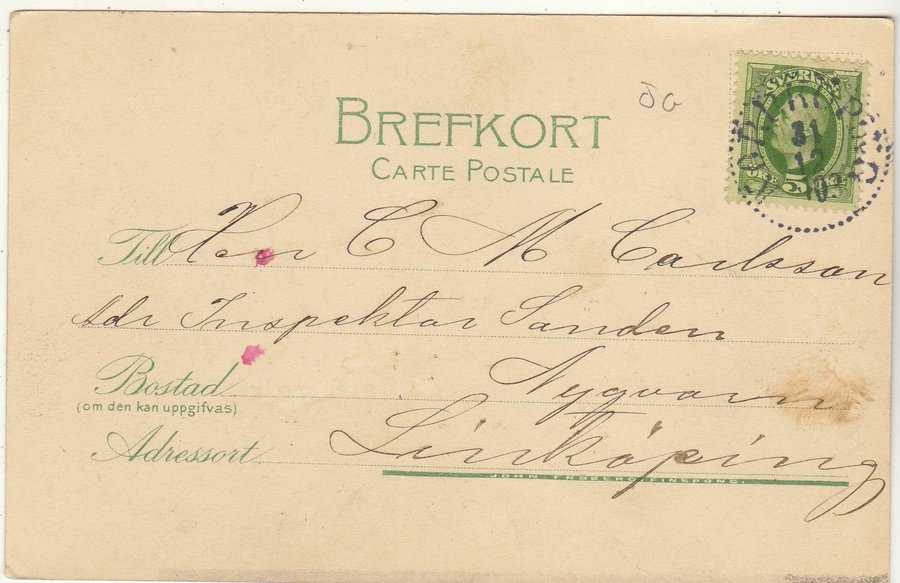 ÖG
BREFKORT
CARTE POSTALE
SVERIGE
31
12
1903
ÖRE 5
Till Herr C M Carlsson
adr Inspektor Sanden
Bostad Nyqvarn
(om den kan uppgifvas)
Adressort Linköping
JOHN FRÖBERG, FINSPONG.